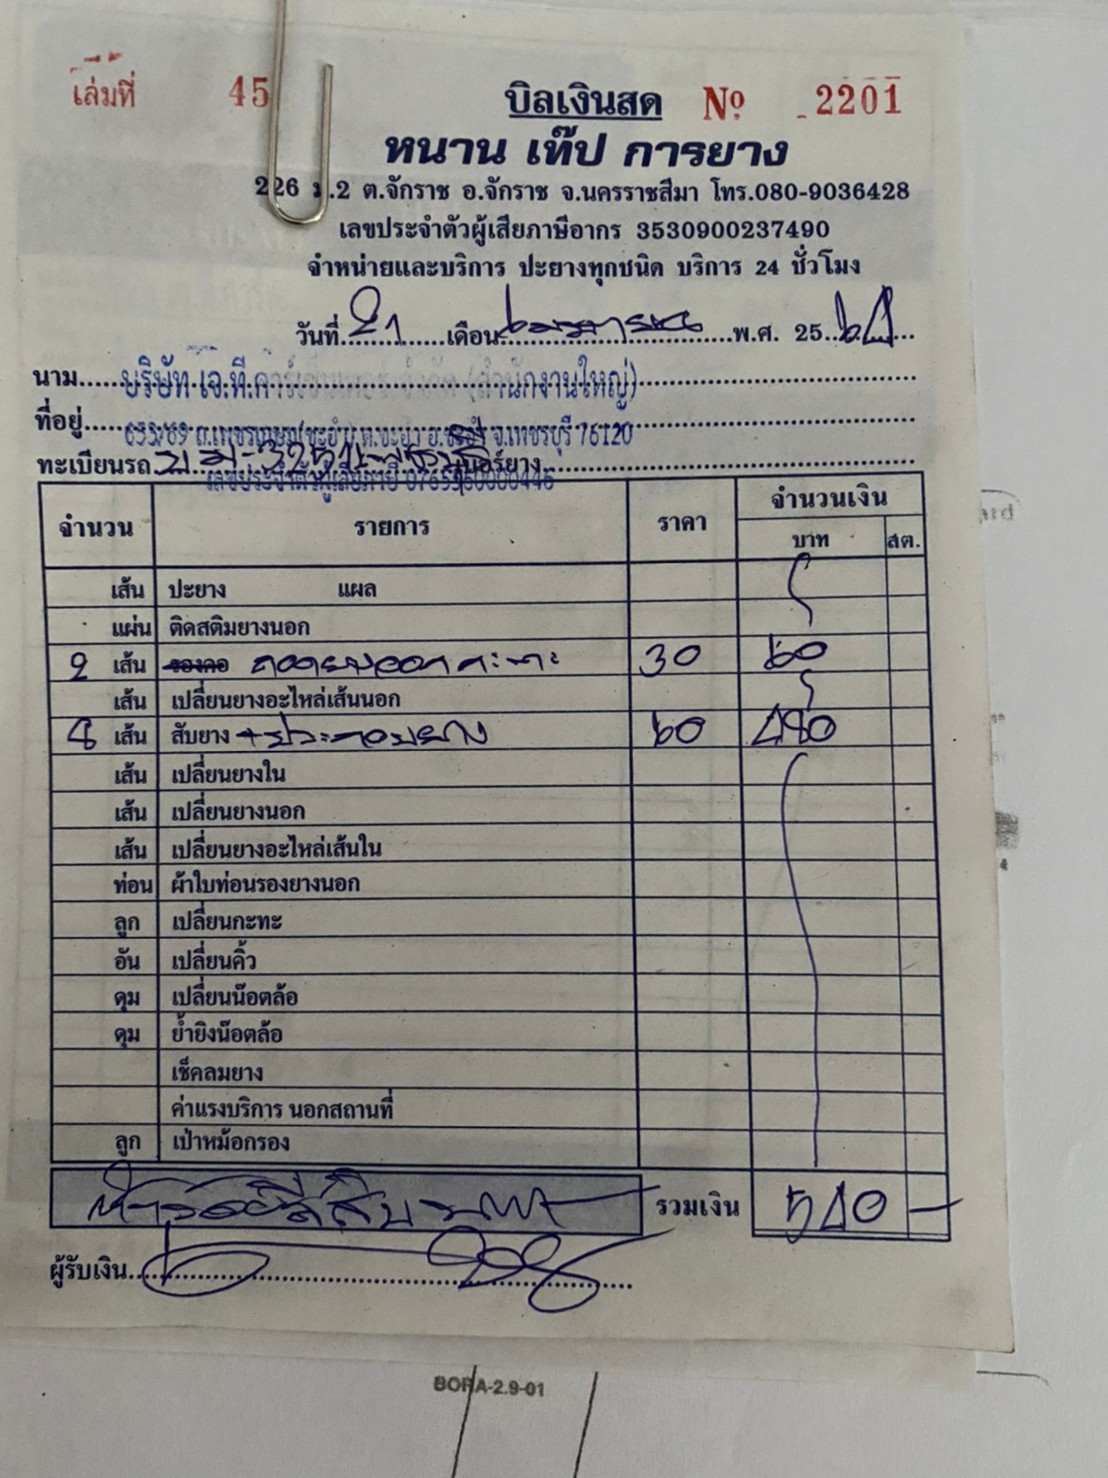 เล่มที่ 45 บิลเงินสด No 2201
หนาน เท๊ป การยาง
226 ม.2 ต.จักราช อ.จักราช จ.นครราชสีมา โทร.080-9036428
เลขประจำตัวผู้เสียภาษีอากร 3530900237490
จำหน่ายและบริการ ปะยางทุกชนิด บริการ 24 ชั่วโมง
วันที่ 21 เดือน เมษายน พ.ศ. 25
นาม บริษัท เจ.ที. (สำนักงานใหญ่)
ที่อยู่ จ.เพชรบุรี 76120
ทะเบียนรถ เบอร์ยาง
เลขประจำตัวผู้เสียภาษี
จำนวน รายการ ราคา จำนวนเงิน
บาท สต.
เส้น ปะยาง แผล
แผ่น ติดสติมยางนอก
2 เส้น รองคอ ถอดยางออกกะทะ 30 60
เส้น เปลี่ยนยางอะไหล่เส้นนอก
8 เส้น สับยาง + ประกอบยาง 60 480
เส้น เปลี่ยนยางใน
เส้น เปลี่ยนยางนอก
เส้น เปลี่ยนยางอะไหล่เส้นใน
ท่อน ผ้าใบท่อนรองยางนอก
ลูก เปลี่ยนกะทะ
อัน เปลี่ยนคิ้ว
ดุม เปลี่ยนน๊อตล้อ
ดุม ย้ำยิงน๊อตล้อ
เช็คลมยาง
ค่าแรงบริการ นอกสถานที่
ลูก เป่าหม้อกรอง
ห้าร้อยสี่สิบบาท รวมเงิน 540 -
ผู้รับเงิน
BORA-2.9-01